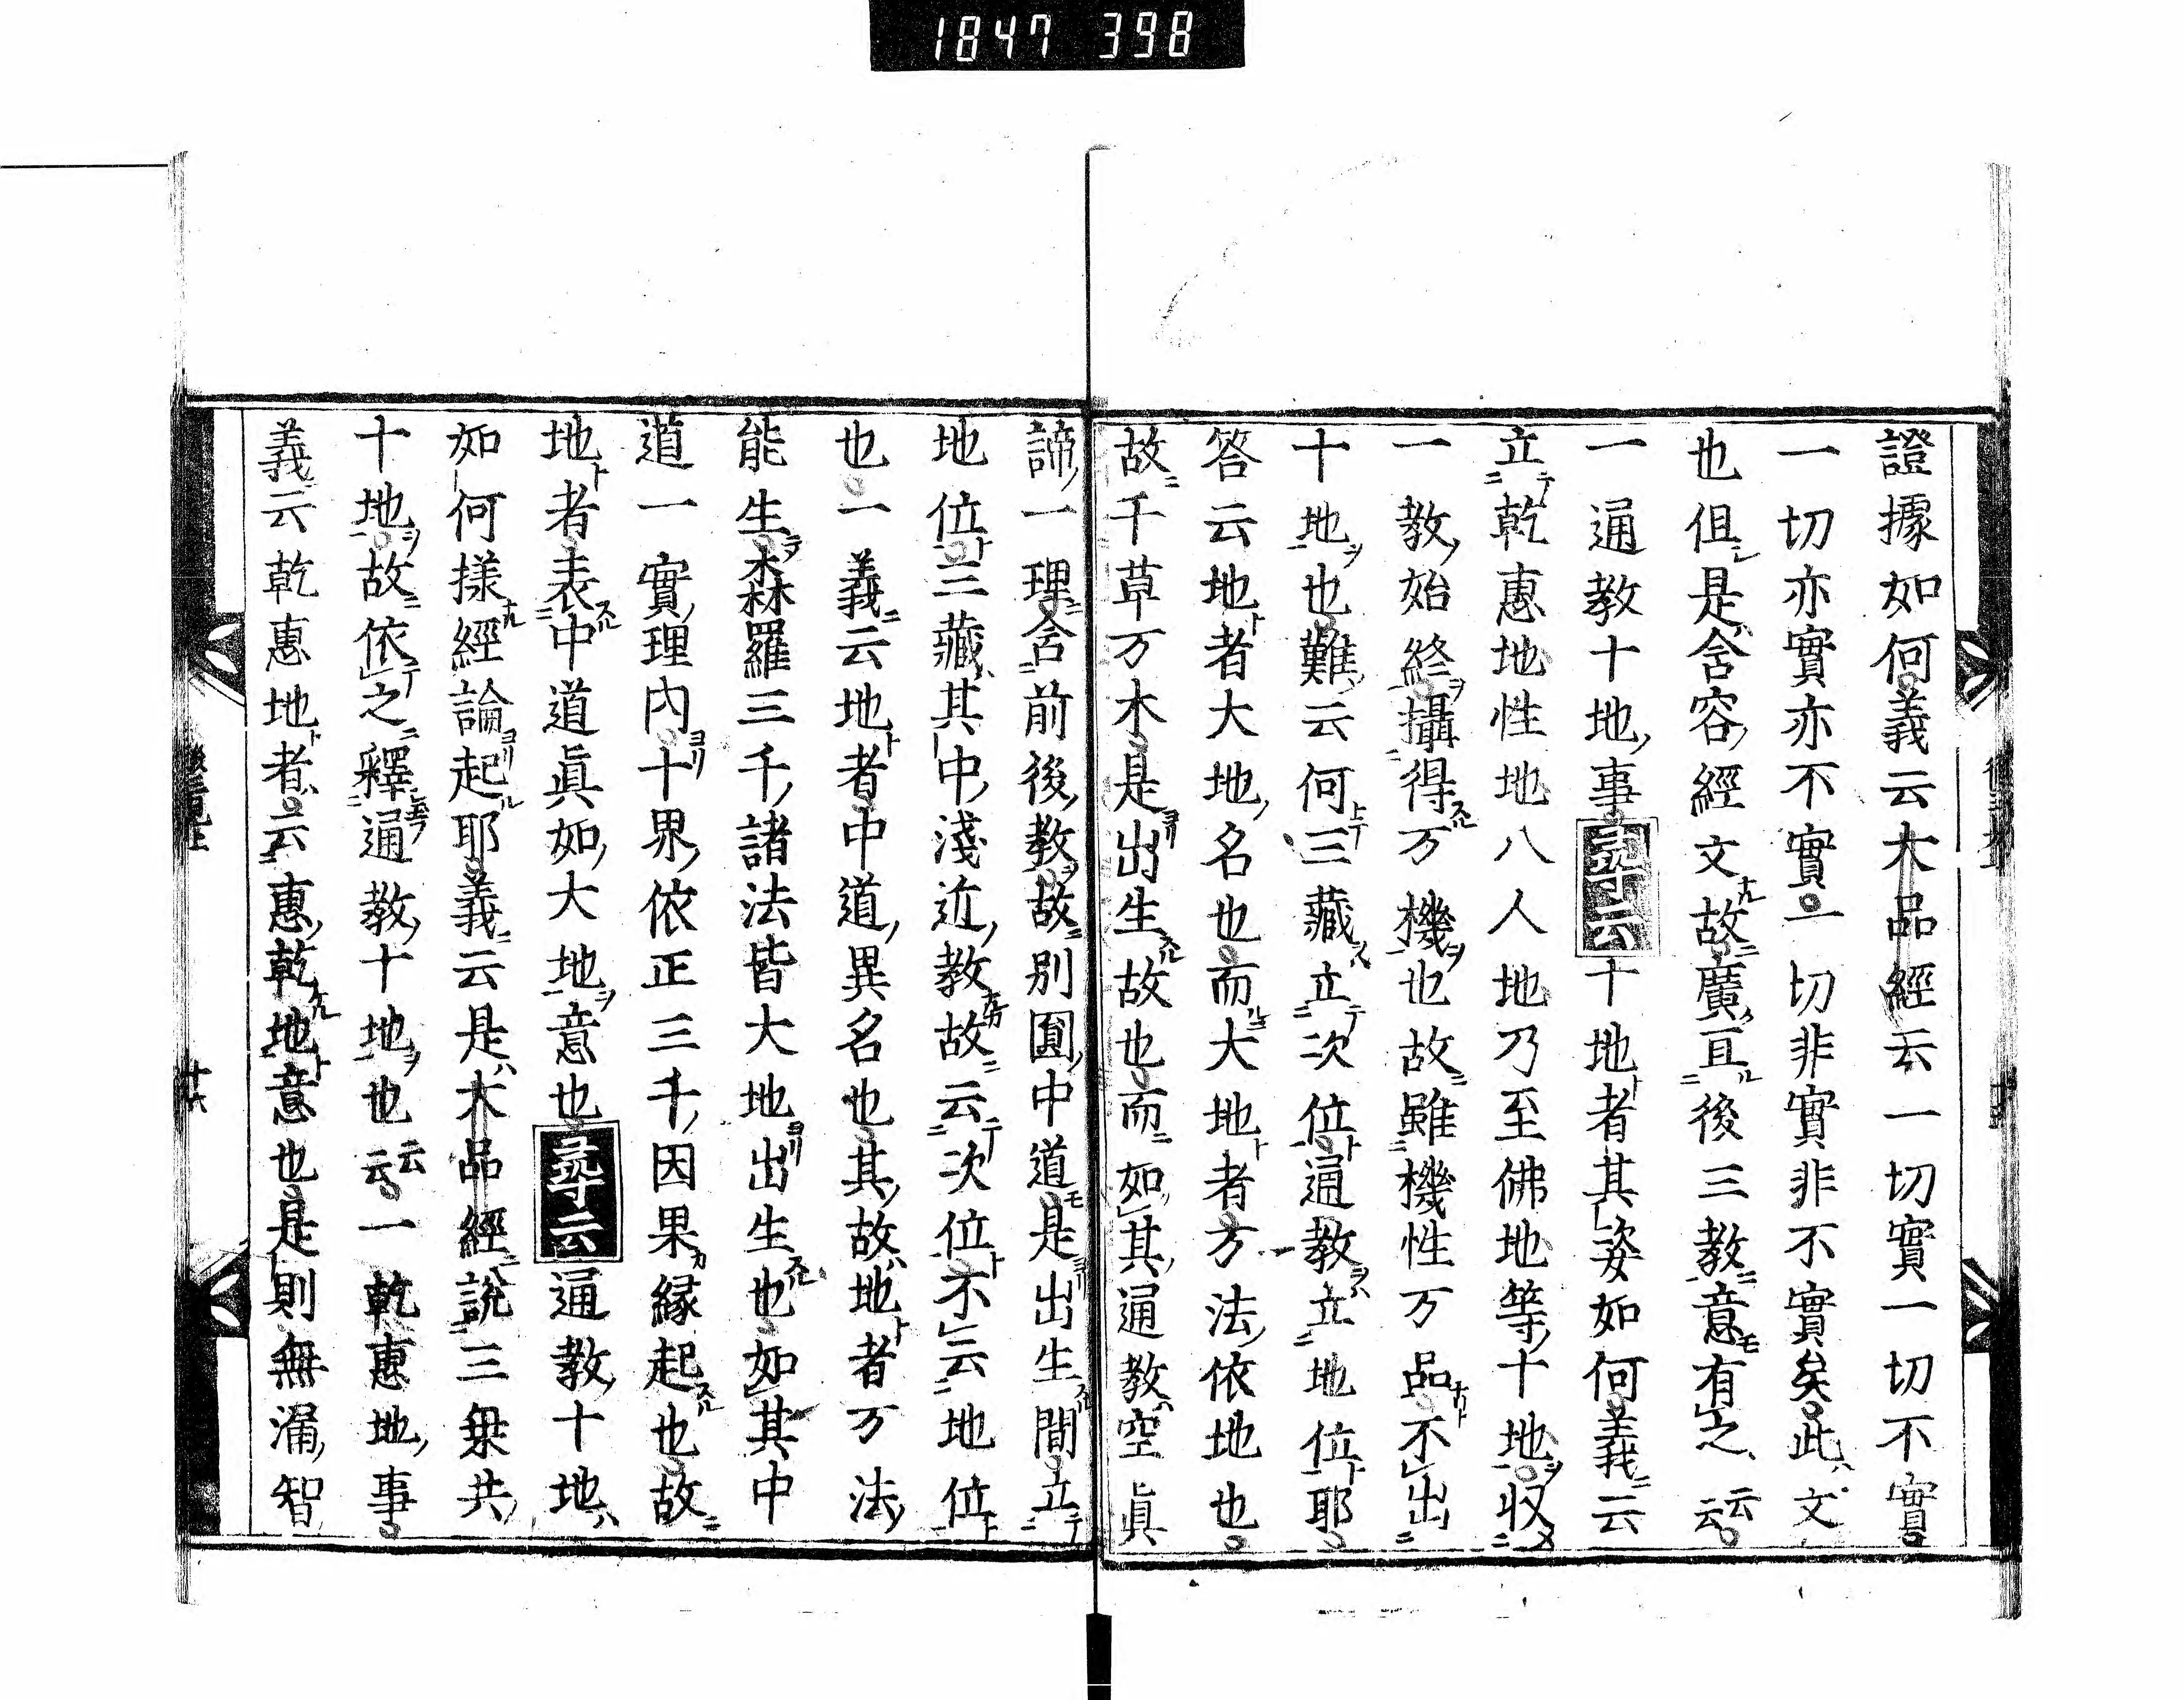 1847 398
證據如何義云大品經云一切實一切不實
一切亦實亦不實一切非實非不實矣此文
也但是含容經文故廣亘後三教意有之云云
一通教十地事尋云十地者其姿如何義云
立乾惠地性地八人地乃至佛地等十地收
一教始終攝得万機也故雖機性万品不出
十地也難云何三藏立次位通教立地位耶
答云地者大地名也而大地者方法依地也
故千草万木是出生故也而如其通教空眞
諦一理含前後教故別圓中道是出生間立
地位三藏其中淺近教故云次位不云地位
也一義云地者中道異名也其故地者万法
能生森羅三千諸法皆大地出生也如其中
道一實理內十界依正三千因果縁起也故
地者表中道眞如大地意也尋云通教十地
如何樣經論起耶義云是大品經說三乗共
十地故依之釋通教十地也云云一乾惠地事
義云乾惠地者云惠乾地意也是則無漏智